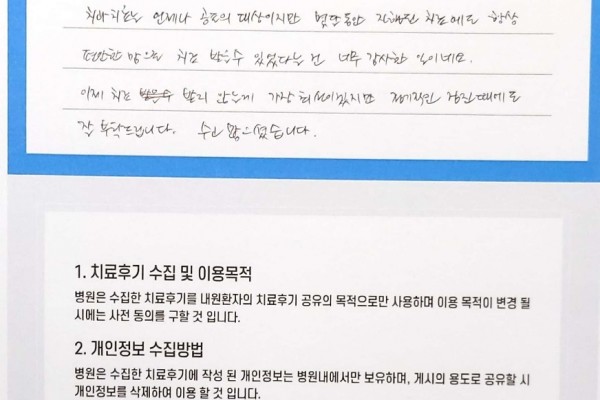 치과치료는 언제나 공포의 대상이지만 몇달동안 진행된 치료에도 항상
편안한 맘으로 치료 받을수 있었다는 건 너무 감사한 일이네요.
이제 치료 받을수 받지 않는게 가장 최선이겠지만 정기적인 검진때에도
잘 부탁드립니다. 수고 많으셨습니다.
1. 치료후기 수집 및 이용목적
병원은 수집한 치료후기를 내원환자의 치료후기 공유의 목적으로만 사용하며 이용 목적이 변경 될
시에는 사전 동의를 구할 것 입니다.
2. 개인정보 수집방법
병원은 수집한 치료후기에 작성 된 개인정보는 병원내에서만 보유하며, 게시의 용도로 공유할 시
개인정보를 삭제하여 이용 할 것 입니다.